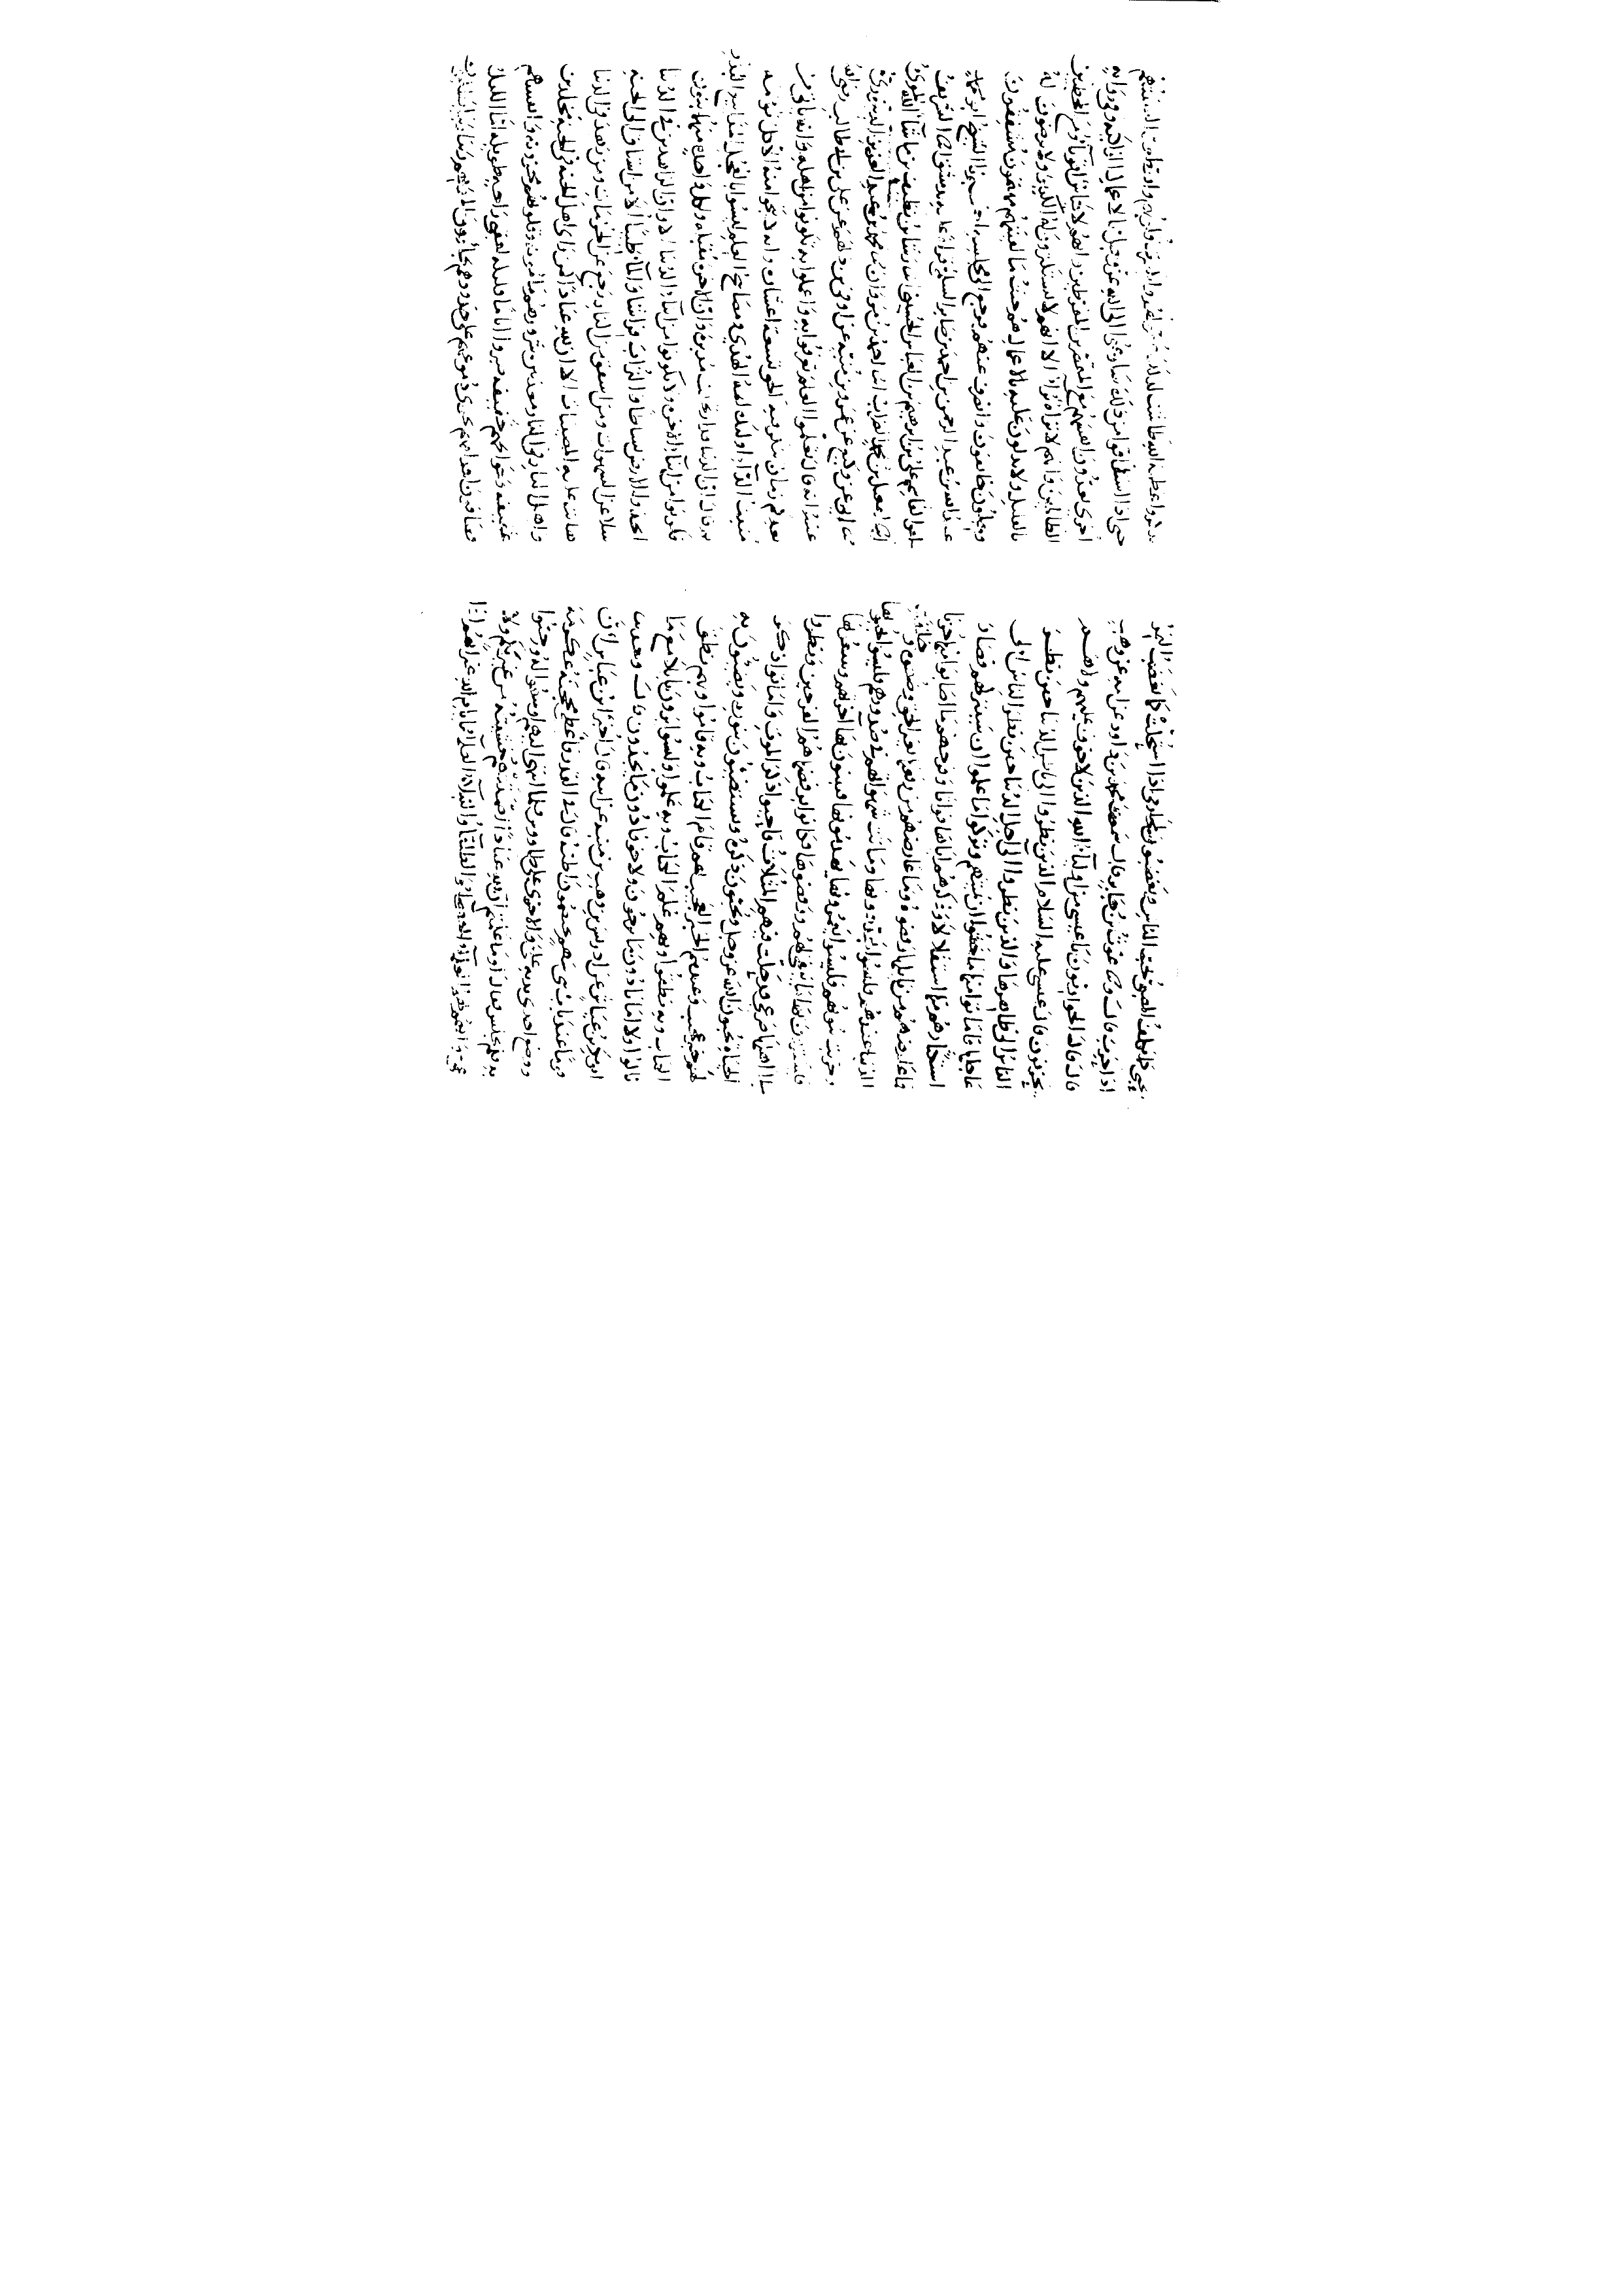 ويغضبون لمحارمي اذا استحلت كما تغضب النمر
اذا حرب قال وسا غوث بن جابر قال سمعت محمد بن داود عن ابيه عن وهب
قال قال الحواريون يا عيسى من اوليآء الله الذين لا خوف عليهم ولا هم
يحزنون قال عيسى عليه السلام الذين نظروا الى باطن الدنيا حين نظر
الناس الى ظاهرها والذين نظروا الى آجل الدنيا حين نظر الناس الى
عاجلها فاماتوا منها ما خشوا ان يميتهم وتركوا ما علموا ان سيتركهم فصار
استكثارهم منها استقلالا وذكرهم اياها فواتا وفرحهم مما اصابوا منها حزنا
فما عارضهم من نايلها رفضوه وما عارضهم من رفعتها بغير الحق وضعوه خلقت
الدنيا عندهم فليسوا يجددونها وماتت شهواتهم في صدورهم فليسوا يحيونها
وخربت بيوتهم فليسوا يعمرونها يهدمونها فيبنون بها اخرتهم ويبيعونها
فيشترون بها ما يبقى لهم ورفضوها فكانوا برفضها هم الفرحين ونظروا
الى اهلها صرعى قد حلت فيهم المثلات فاحيوا ذكر الموت واماتوا ذكر
الحياة يحبون الله عز وجل ويحبون ذكره ويستضيئون بنوره ويضيئون به
لهم خبر عجيب وعندهم الخبر العجيب بهم قام الكتاب وبه قاموا وبهم نطق
الكتاب وبه نطقوا وبهم علم الكتاب وبه علموا وليسوا يرون نايلا مع ما
نالوا ولا امانا دون ما يرجون ولا خوفا دون ما يحذرون قال وحدثنا
ابو بكر بن عياش عن ادريس بن وهب بن منبه عن ابيه قال اخبر ابن عباس ان
قوما عند باب بني سهم يختصمون اظنه قال في القدر فاعطى محجنه عكرمة
ووضع احدى يديه عليه والاخرى على طاووس فلما انتهى اليهم اوسعوا له ورحبوا
به فلم يجلس فقال اوما علمتم ان لله عبادا اصمتتهم خشيته من غير بكم ولا
عي وانهم لهم العلمآء بايام الله غير انهم اذا
تذكروا عظمة الله طاشت لذلك السنتهم
حتى اذا استفاقوا من ذلك تسارعوا الى الله عز وجل بالاعمال الزاكية وفي رواية
اخرى يعدون انفسهم مع المفرطين وانهم لاكياس اقويآء ومع الخاطين
الظالمين وانهم لابرار برآء الا انهم لا يستكثرون له الكثير ولا يرضون له
بالقليل ولا يدلون عليه بالاعمال هم حيث ما لقيتهم مهتمون مشفقون
وجلون خايفون وانصرف عنهم فرجع الى مجلسه الشيخ ابو محمد
عبد الله بن عبد الرحمن بن احمد بن صابر السلمي قراة عليه بدمشق انا الشريف
ابو القاسم علي بن ابرهيم بن العباس الحسيني انا رشا بن نظيف بن ما شآ الله المقرئ
بن محمد الضراب انا احمد بن مروان نا محمد بن عبد العزيز الدينوري
نا ابي عن وكيع عن عمرو بن منبه عن اوفى بن دلهم عن علي بن ابي طالب رضي الله
عنه انه قال تعلموا العلم تعرفوا به واعملوا به تكونوا من اهله فانه ياتي من
بعدكم زمان ينكر فيه الحق تسعة اعشاره وانه لا ينجو منه الا كل نومة
منيب الدآء اوليك ايمة الهدى ومصابيح العلم ليسوا بالعجل المذاييع البذر
ثم قال ان الدنيا قد ارتحلت مدبرة وان الاخرة مقبلة ولكل واحدة منهما بنون
فكونوا من ابنآء الاخرة ولا تكونوا من ابنآء الدنيا الا وان الزاهدين في الدنيا
اتخذوا الارض بساطا والتراب فراشا والمآء طيبا الا من اشتاق الى الجنة
سلا عن الشهوات ومن اشفق من النار رجع عن الحرمات ومن زهد في الدنيا
هانت عليه المصيبات الا ان لله عبادا كمن راى اهل الجنة في الجنة مخلدين
واهل النار في النار معذبين شرورهم مامونة وقلوبهم محزونة وانفسهم
عفيفة وحوايجهم خفيفة صبروا اياما قليلة لعقبى راحة طويلة اما الليل
فصافون اقدامهم تجري دموعهم على خدودهم يجارون الى ربهم ربنا ربنا